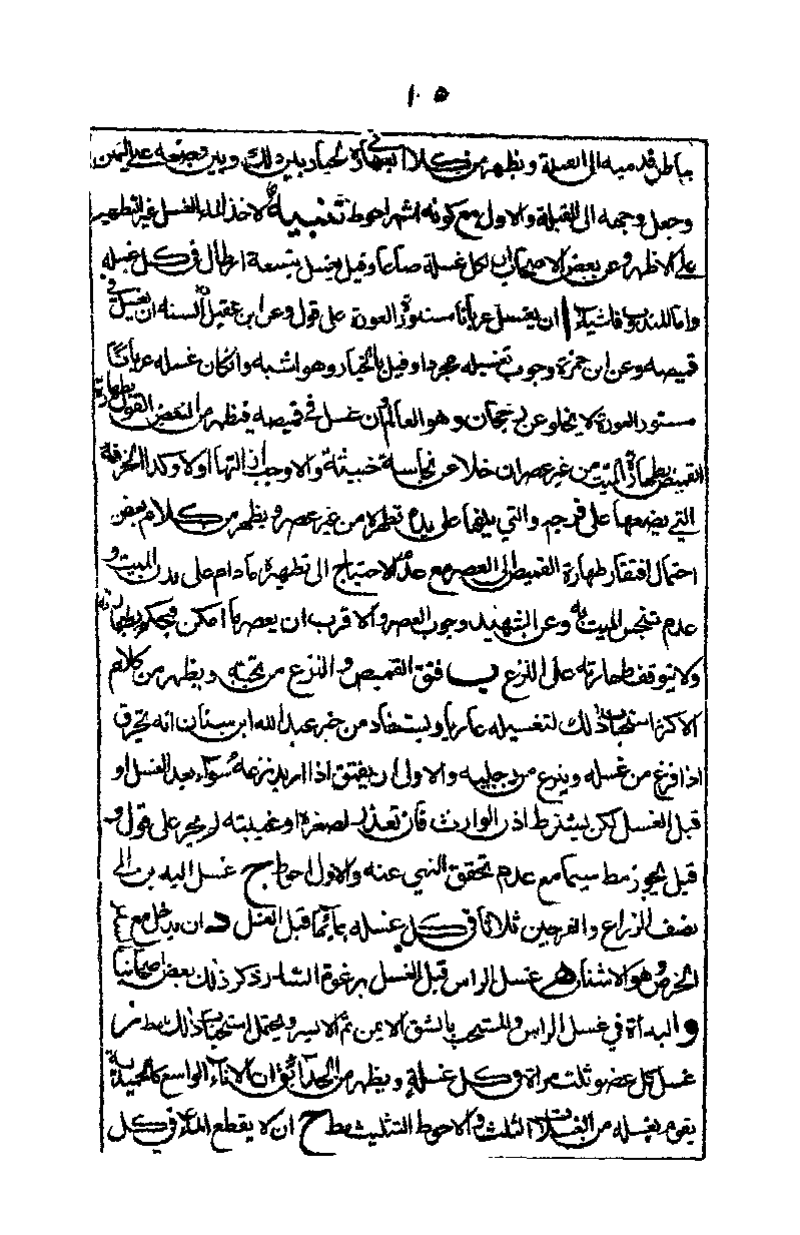 ١٠٥
بباطن قدميه الى القبلة ويظهر من كلام بعضهم في التخيير بين ذلك وبين تضجيعه على اليمين
وجعل وجهه الى القبلة والاول مع كونه اشهر احوط تنبيه لاخذ الماء الغسل غير التطهير
على الاظهر وعن بعض الاصحاب لكل غسلة صاعا وقيل يغسل بتسعة ارطال في كل غسله
واما المندوب فاشياء ا ان يغسل عريانا مستور العورة على قول وعن ابن عقيل السنه ان يغسل في
قميصه وعن ابن حمزة وجوب تغسيله مجردا وقيل بالخيار وهو اشبه وان كان غسله عريانا
مستور العورة لا يخلو عن رجحان وهو العالم وان غسل في قميصه فيظهر من البعض القول بطهارة
القميص بطهارة الميت من غير عصر ان خلا عن نجاسة خبيثة والا وجب ازالتها اولا وكذا الخرقة
التي يضعها على فرجه والتي يلفها على يده تطهره من غير عصر ويظهر من كلام بعض
احتمال افتقار طهارة القميص الى العصر مع عدم الاحتياج الى تطهيره مادام على بدن الميت و
عدم تنجس الميت به وعن الشهيد وجوب العصر والاقرب ان يعصر ما امكن فيحكم بطهارته
ولا يتوقف طهارته على النزع ب فتق القميص و النزع من تحته ويظهر من كلام
الاكثر استحباب ذلك لتغسيله عاريا ويستفاد من خبر عبد الله ابن سنان انه يخرق
اذا فرغ من غسله وينزع من رجليه والاولى ان يفتق اذا اريد نزعه سواء بعد الغسل او
قبل الغسل لكن يشترط اذن الوارث فان تعذر لصغره او غيبته لم يجز على قول و
قيل يجوز مط سيما مع عدم تحقق النهي عنه والاول احوط ج غسل اليدين الى
نصف الزراع والفرجين ثلاثا في كل غسله بمائها قبل الغسل د ان يدخل مع
الحرض وهو الاشنان ه غسل الراس قبل الغسل برغوة السدر ذكر ذلك بعض اصحابنا
و البدأة في غسل الراس والمستحب بالشق الايمن ثم الايسر ويحتمل استحباب ذلك مط ز
غسل كل عضو ثلث مراة في كل غسلة ويظهر من الحدائق ان الاناء الواسع كالحميدية
يقوم بغسله من الغسلات الثلث والاحوط التثليث مط ح ان لا يقطع الماء في كل